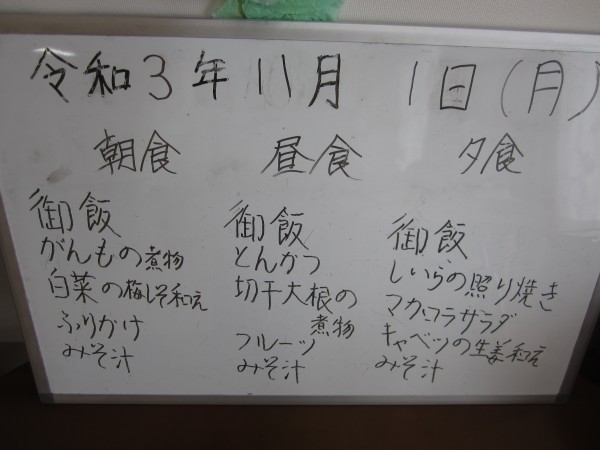 令和3年11月 1日(月)
朝食
御飯
がんもの煮物
白菜の梅しそ和え
ふりかけ
みそ汁
昼食
御飯
とんかつ
切干大根の
煮物
フルーツ
みそ汁
夕食
御飯
しいらの照り焼き
マカロニサラダ
キャベツの生姜和え
みそ汁